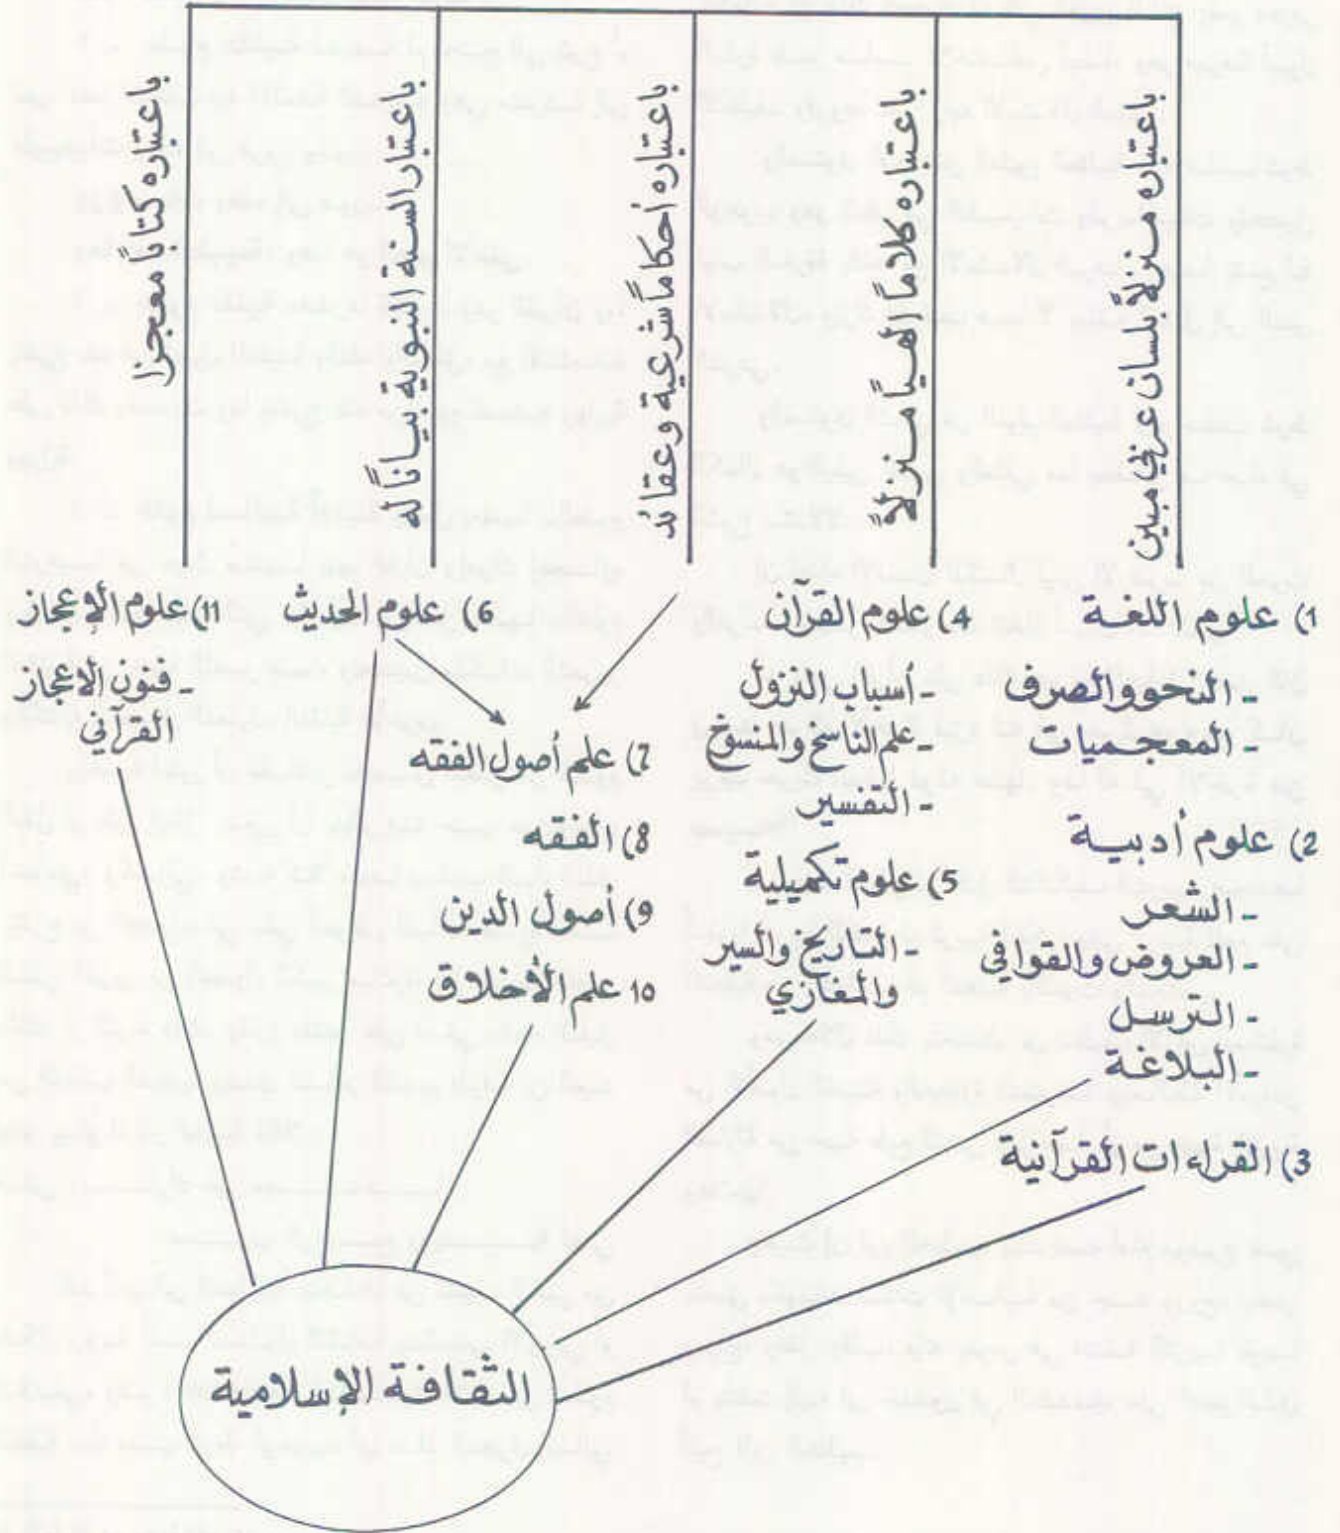 باعتباره منزلاً بلسان عربي مبين
باعتباره كلاماً إلهياً منزلاً
باعتباره أحكاماً شرعية وعقائد
باعتبار السنة النبوية بياناً له
باعتباره كتاباً معجزا
1) علوم اللغة
- النحو والصرف
- المعجميات
2) علوم أدبية
- الشعر
- العروض والقوافي
- الترسل
- البلاغة
3) القراءات القرآنية
4) علوم القرآن
- أسباب النزول
- علم الناسخ والمنسوخ
- التفسير
5) علوم تكميلية
- التاريخ والسير
والمغازي
6) علوم الحديث
7) علم أصول الفقه
8) الفقه
9) أصول الدين
10 علم الأخلاق
11) علوم الإعجاز
- فنون الإعجاز
القرآني
الثقافة الإسلامية